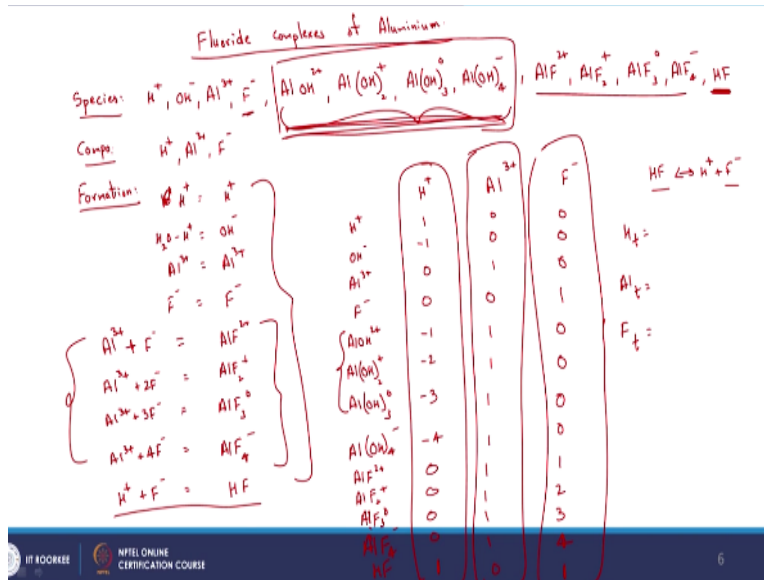 Fluoride complexes of Aluminium.
Species: H⁺, OH⁻, Al³⁺, F⁻, AlOH²⁺, Al(OH)₂⁺, Al(OH)₃⁰, Al(OH)₄⁻, AlF²⁺, AlF₂⁺, AlF₃⁰, AlF₄⁻, HF
Compo: H⁺, Al³⁺, F⁻
Formation:
H⁺ = H⁺
H₂O - H⁺ = OH⁻
Al³⁺ = Al³⁺
F⁻ = F⁻
Al³⁺ + F⁻ = AlF²⁺
Al³⁺ + 2F⁻ = AlF₂⁺
Al³⁺ + 3F⁻ = AlF₃⁰
Al³⁺ + 4F⁻ = AlF₄⁻
H⁺ + F⁻ = HF
H⁺ Al³⁺ F⁻
H⁺ 1 0 0
OH⁻ -1 0 0
Al³⁺ 0 1 0
F⁻ 0 0 1
AlOH²⁺ -1 1 0
Al(OH)₂⁺ -2 1 0
Al(OH)₃⁰ -3 1 0
Al(OH)₄⁻ -4 1 0
AlF²⁺ 0 1 1
AlF₂⁺ 0 1 2
AlF₃⁰ 0 1 3
AlF₄⁻ 0 1 4
HF 1 0 1
HF ↔ H⁺ + F⁻
Hₜ =
Alₜ =
Fₜ =
IIT ROORKEE
NPTEL ONLINE
CERTIFICATION COURSE
6